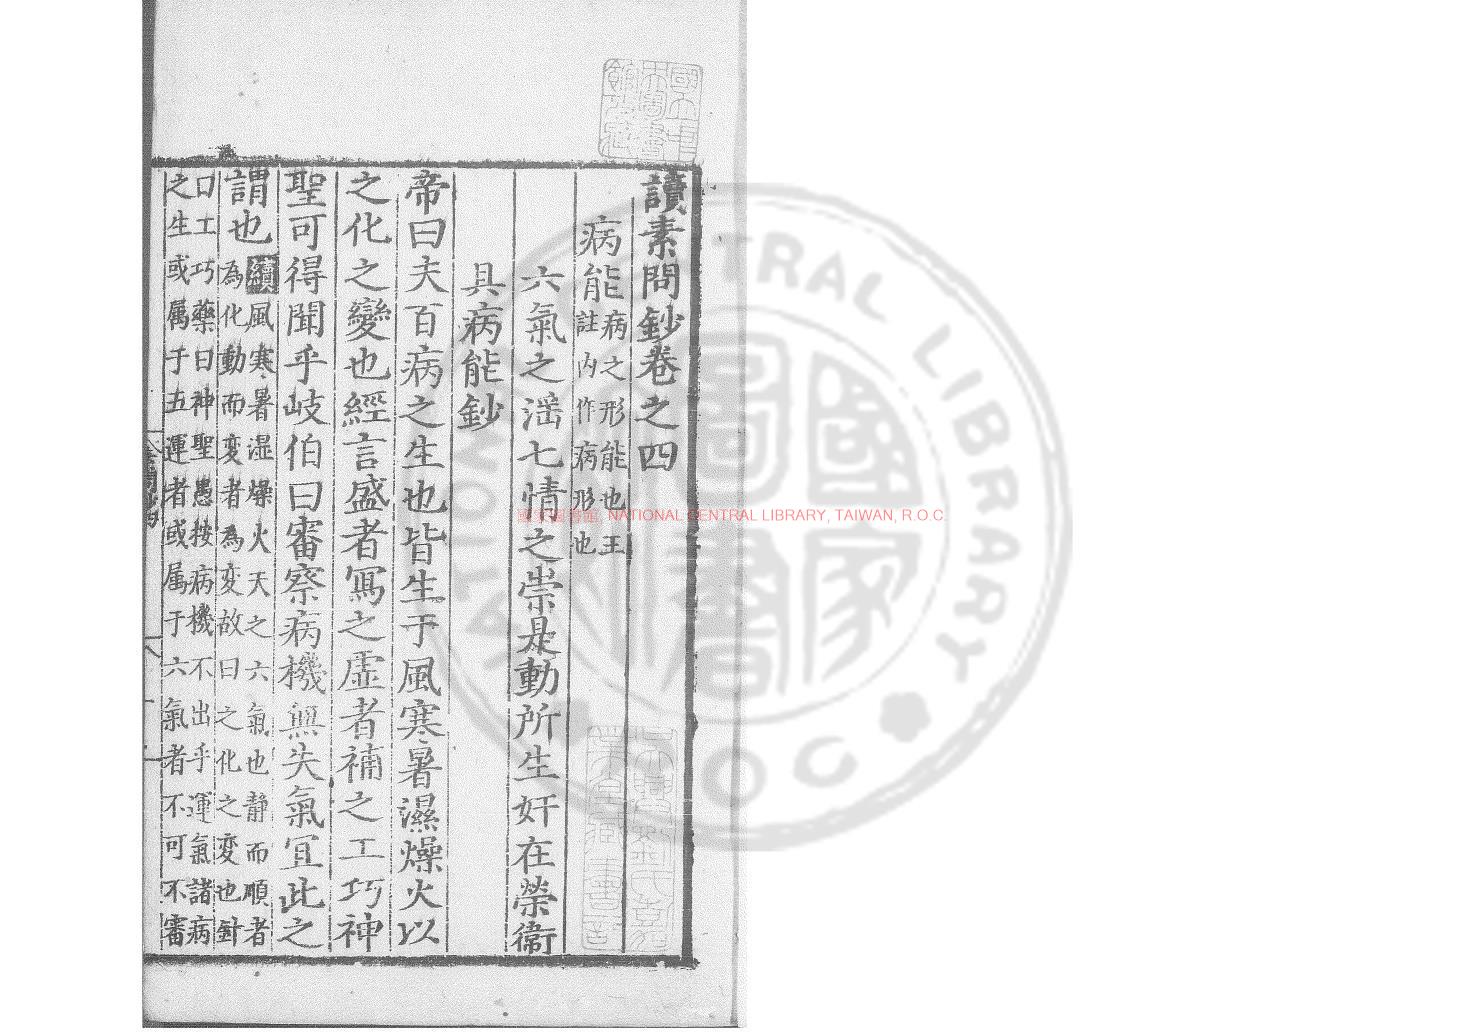 讀素問鈔卷之四
病能病之形能也王
註内作病形也
六氣之滛七情之崇是動所生奸在榮衞
具病能鈔
帝曰夫百病之生也皆生于風寒暑濕燥火以
之化之變也經言盛者冩之虛者補之工巧神
聖可得聞乎岐伯曰審察病機無失氣宜此之
謂也續風寒暑湿燥火天之六氣也静而順者
為化動而变者為变故曰之化之变也針
口工巧藥曰神聖愚按病機不出乎運氣諸病
之生或属于五運者或属于六氣者不可不審
國家圖書館, NATIONAL CENTRAL LIBRARY, TAIWAN, R.O.C.
NATIONAL CENTRAL LIBRARY
R O C
國家圖書